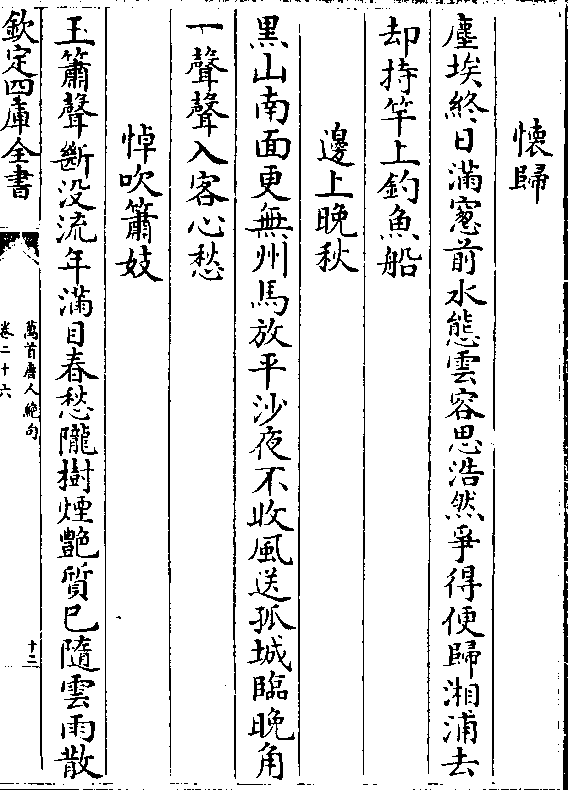 懐歸
塵埃終日滿窻前水態雲容思浩然爭得便歸湘浦去
却持竿上釣魚船
邊上晚秋
黒山南面更無州馬放平沙夜不收風送孤城臨晚角
一聲聲入客心愁
悼吹簫妓
玉簫聲斷没流年滿目春愁隴樹煙艶質已隨雲雨散
欽定四庫全書
萬首唐人絶句
卷二十六
十三